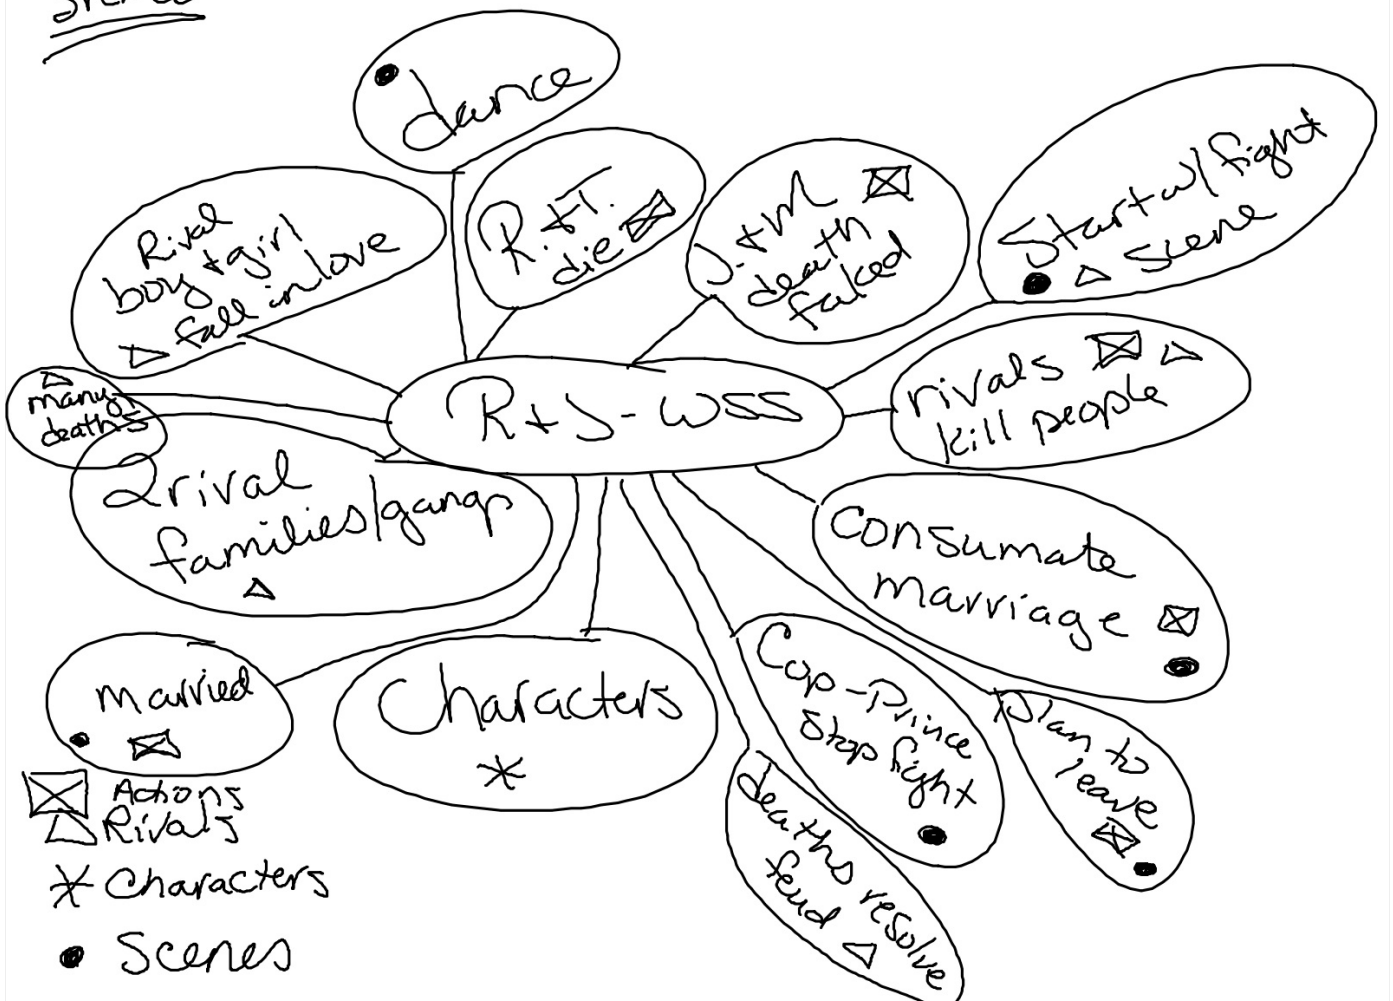 dance
Rival
boy + girl
fall in love
R. + T.
die
J. + M
death
faked
Start w/ fight
scene
many
deaths
R + J - WSS
rivals
kill people
2 rival
families/gangs
consumate
marriage
married
Characters
Cop-Prince
Stop fight
plan to
leave
deaths resolve
feud
Actions
Rivals
Characters
Scenes